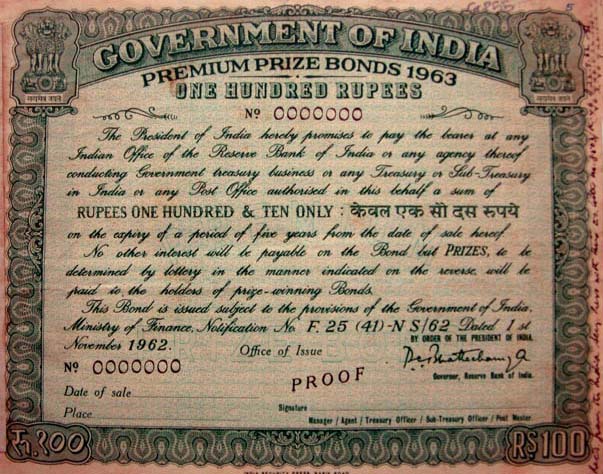 GOVERNMENT OF INDIA
PREMIUM PRIZE BONDS 1963
ONE HUNDRED RUPEES
Nº 0000000
The President of India hereby promises to pay the bearer at any
Indian Office of the Reserve Bank of India or any agency thereof
conducting Government treasury business or any Treasury or Sub-Treasury
in India or any Post Office authorised in this behalf a sum of
RUPEES ONE HUNDRED & TEN ONLY : केवल एक सौ दस रूपये
on the expiry of a period of five years from the date of sale hereof.
No other interest will be payable on the Bond but PRIZES, to be
determined by lottery in the manner indicated on the reverse, will be
paid to the holders of prize-winning Bonds.
This Bond is issued subject to the provisions of the Government of India,
Ministry of Finance, Notification No F. 25 (41)-N S/62 Dated 1st
November 1962.
BY ORDER OF THE PRESIDENT OF INDIA.
Office of Issue
Nº 0000000
Governor, Reserve Bank of India.
PROOF
Date of sale
Place
Signature
Manager / Agent / Treasury Officer / Sub-Treasury Officer / Post Master
रु.१००
RS 100